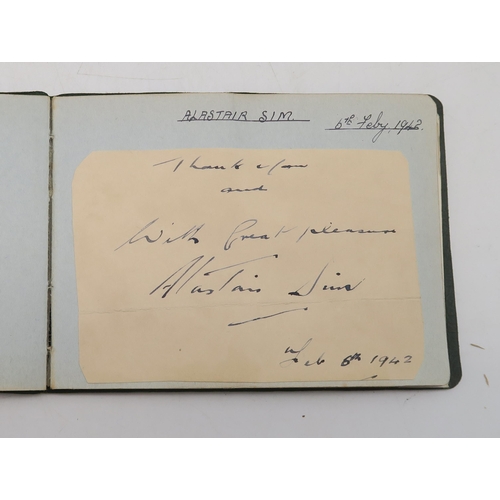 ALASTAIR SIM.
6th Feby. 1942.
Thank you
and
With Great pleasure
Alastair Sim
Feb 6th 1942